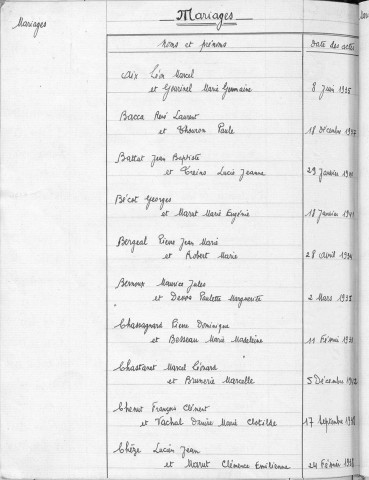 Mariages
Mariages
Noms et prénoms
Date des actes
Aix Léon Marcel
et Gourinel Marie Germaine 8 Juin 1935
Bacca René Laurent
et Chouron Paule 18 Décembre 1937
Battut Jean Baptiste
et Treins Lucie Jeanne 29 Janvier
Bécot Georges
et Maret Marie Eugénie 18 Janvier 1941
Bergeal Pierre Jean Marie
et Robert Marie 28 Avril 1934
Bernoux Maurice Jules
et Paulette Marguerite 2 Mars 1938
Chassagnard Pierre Dominique
et Besseau Marie Madeleine 11 Février
Chastanet Marcel Léonard
et Brunerie Marcelle 5 Décembre
Chemet François Clément
et Vachal Denise Marie Clotilde 17 Septembre
Chèze Lucien Jean
et Marut Clémence Emilienne 24 Février